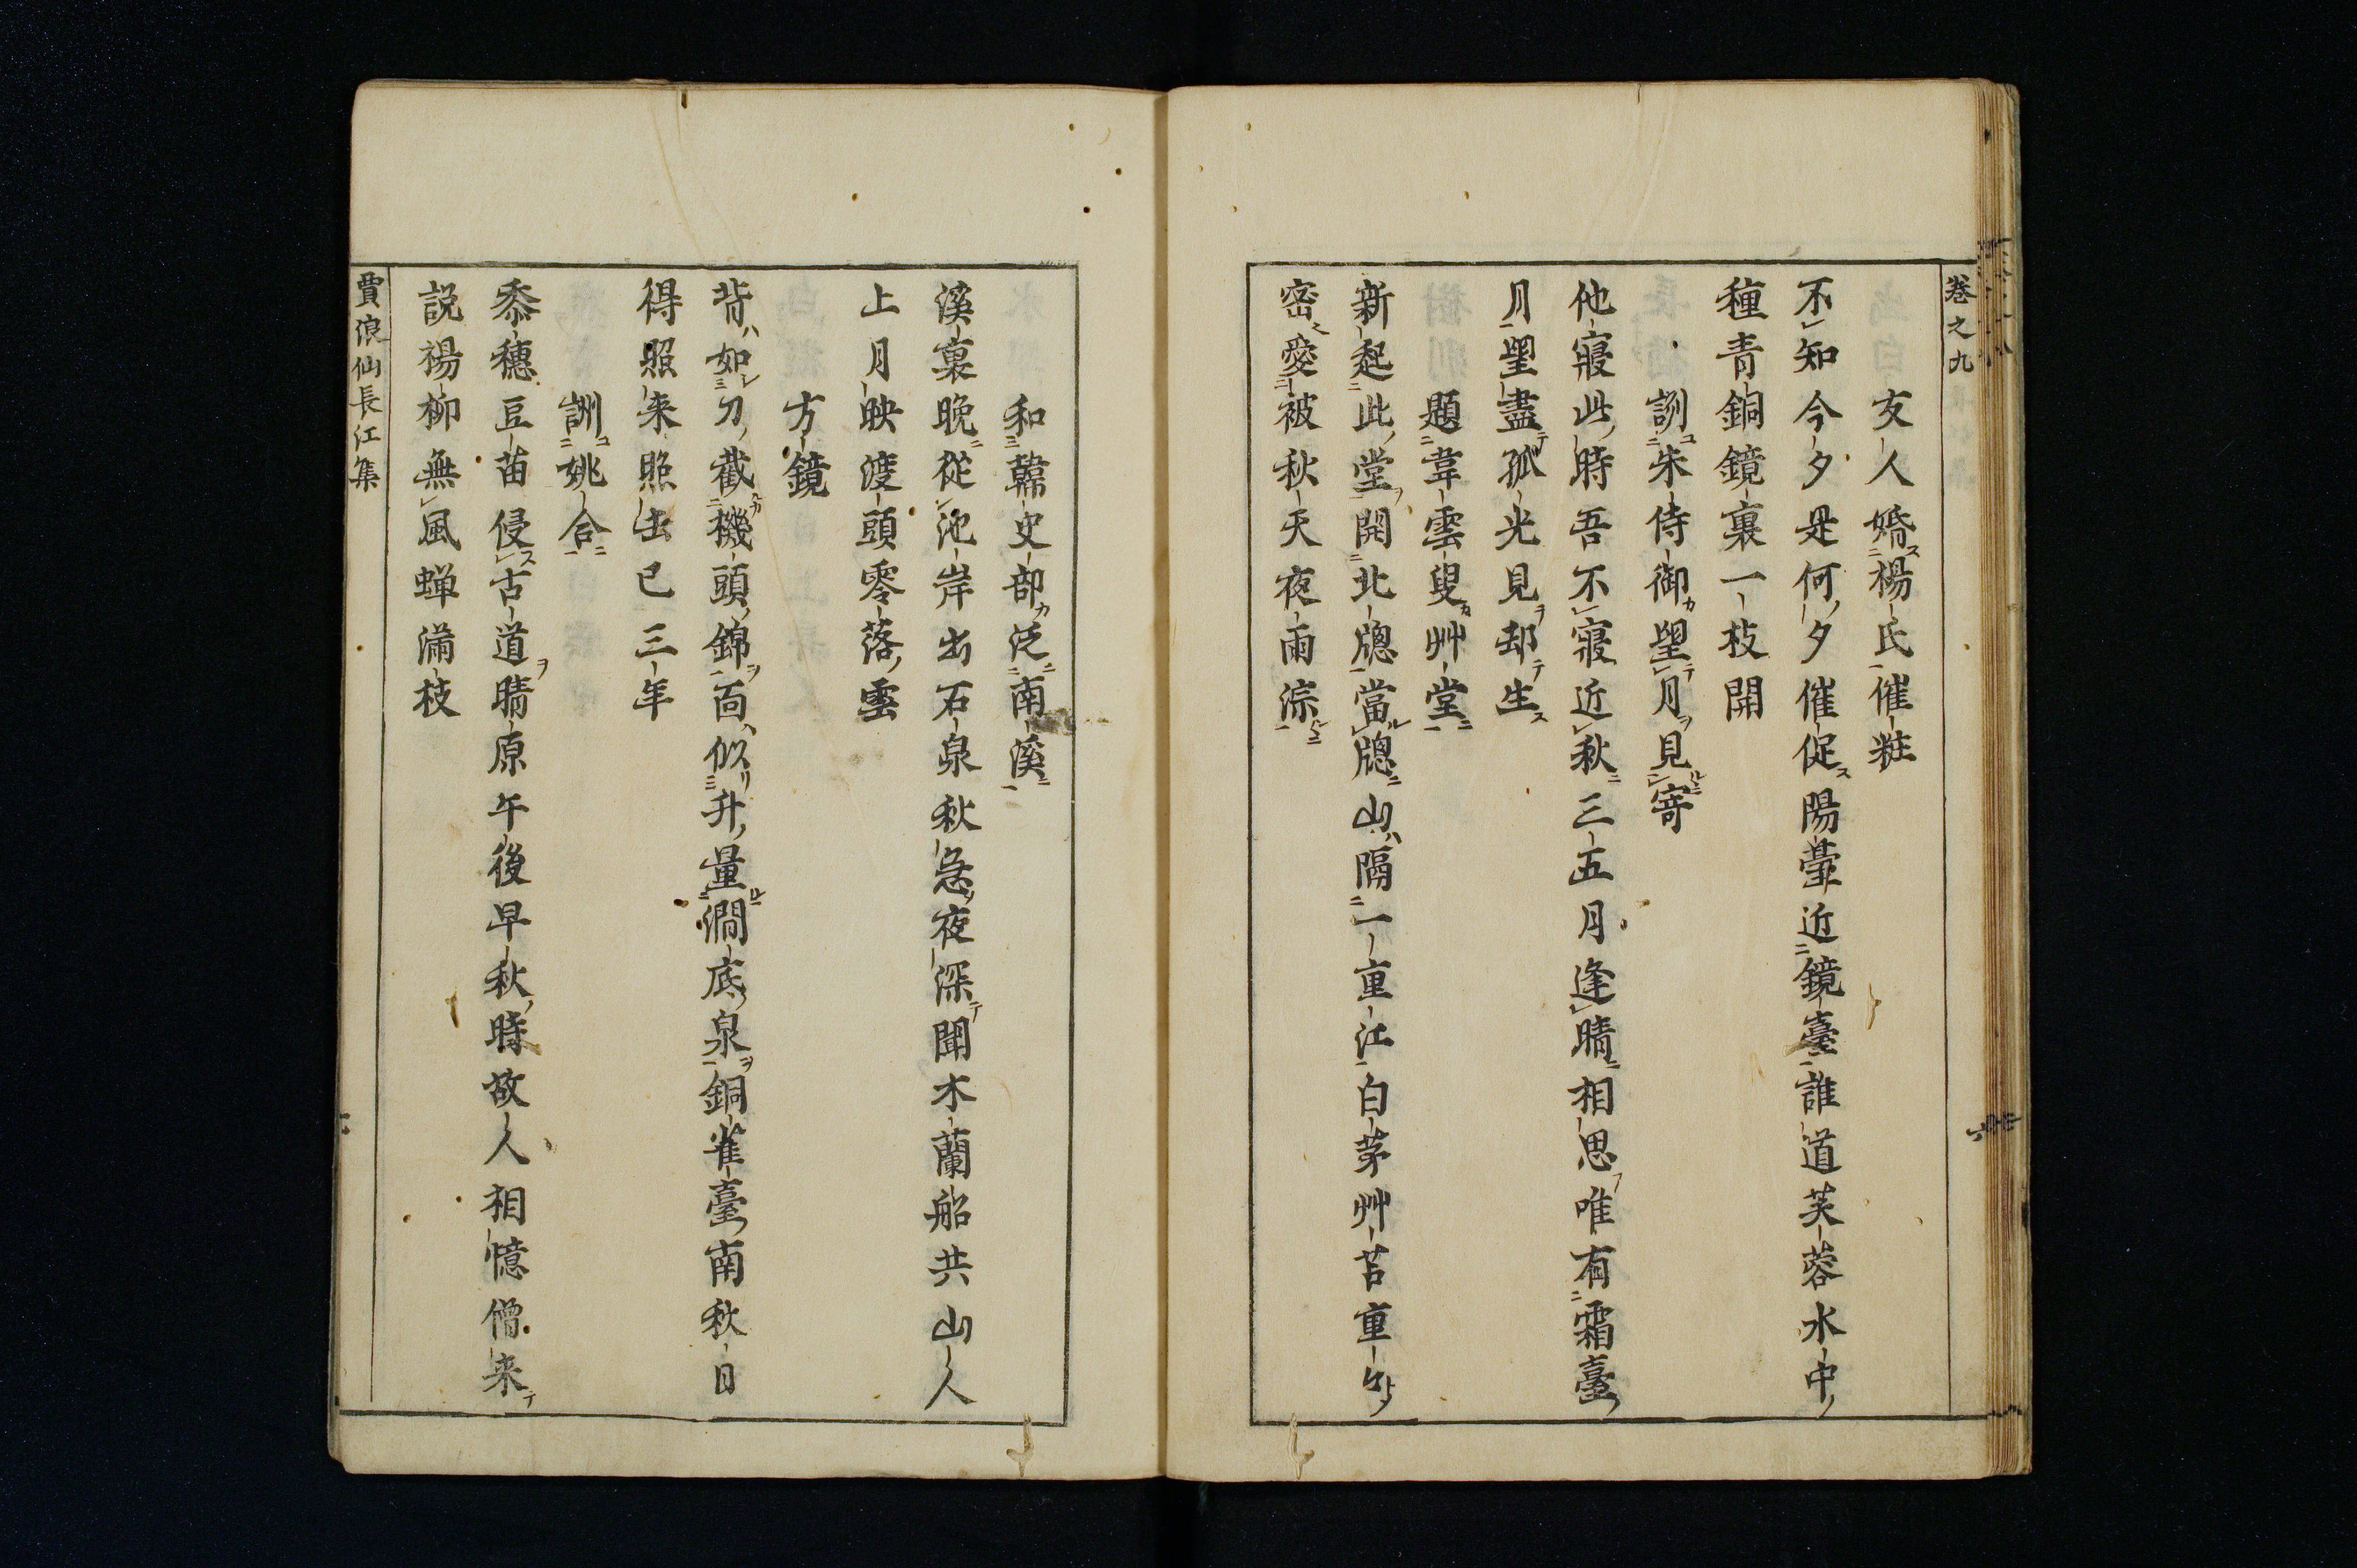 卷之九
友人婚楊氏催粧
不知今夕是何夕催促陽臺近鏡臺誰道芙蓉水中
種青銅鏡裏一枝開
詶朱侍御望月見寄
他寢此時吾不寢近秋三五月逢晴相思唯有霜臺
月望盡孤光見却生
題韋雲叟艸堂
新起此堂開北牎當牎山隔一重江白茅艸苫重〻
密愛被秋天夜雨淙
和韓史部泛南溪
溪裏晚從池岸出石泉秋急夜深聞木蘭船共山人
上月映渡頭零落雲
方鏡
背如刀截機頭錦面似升量澗底泉銅雀臺南秋日
得照来照出已三年
詶姚合
黍穗豆苗侵古道晴原午後早秋時故人相憶僧来
説楊柳無風蝉滿枝
賈浪仙長江集